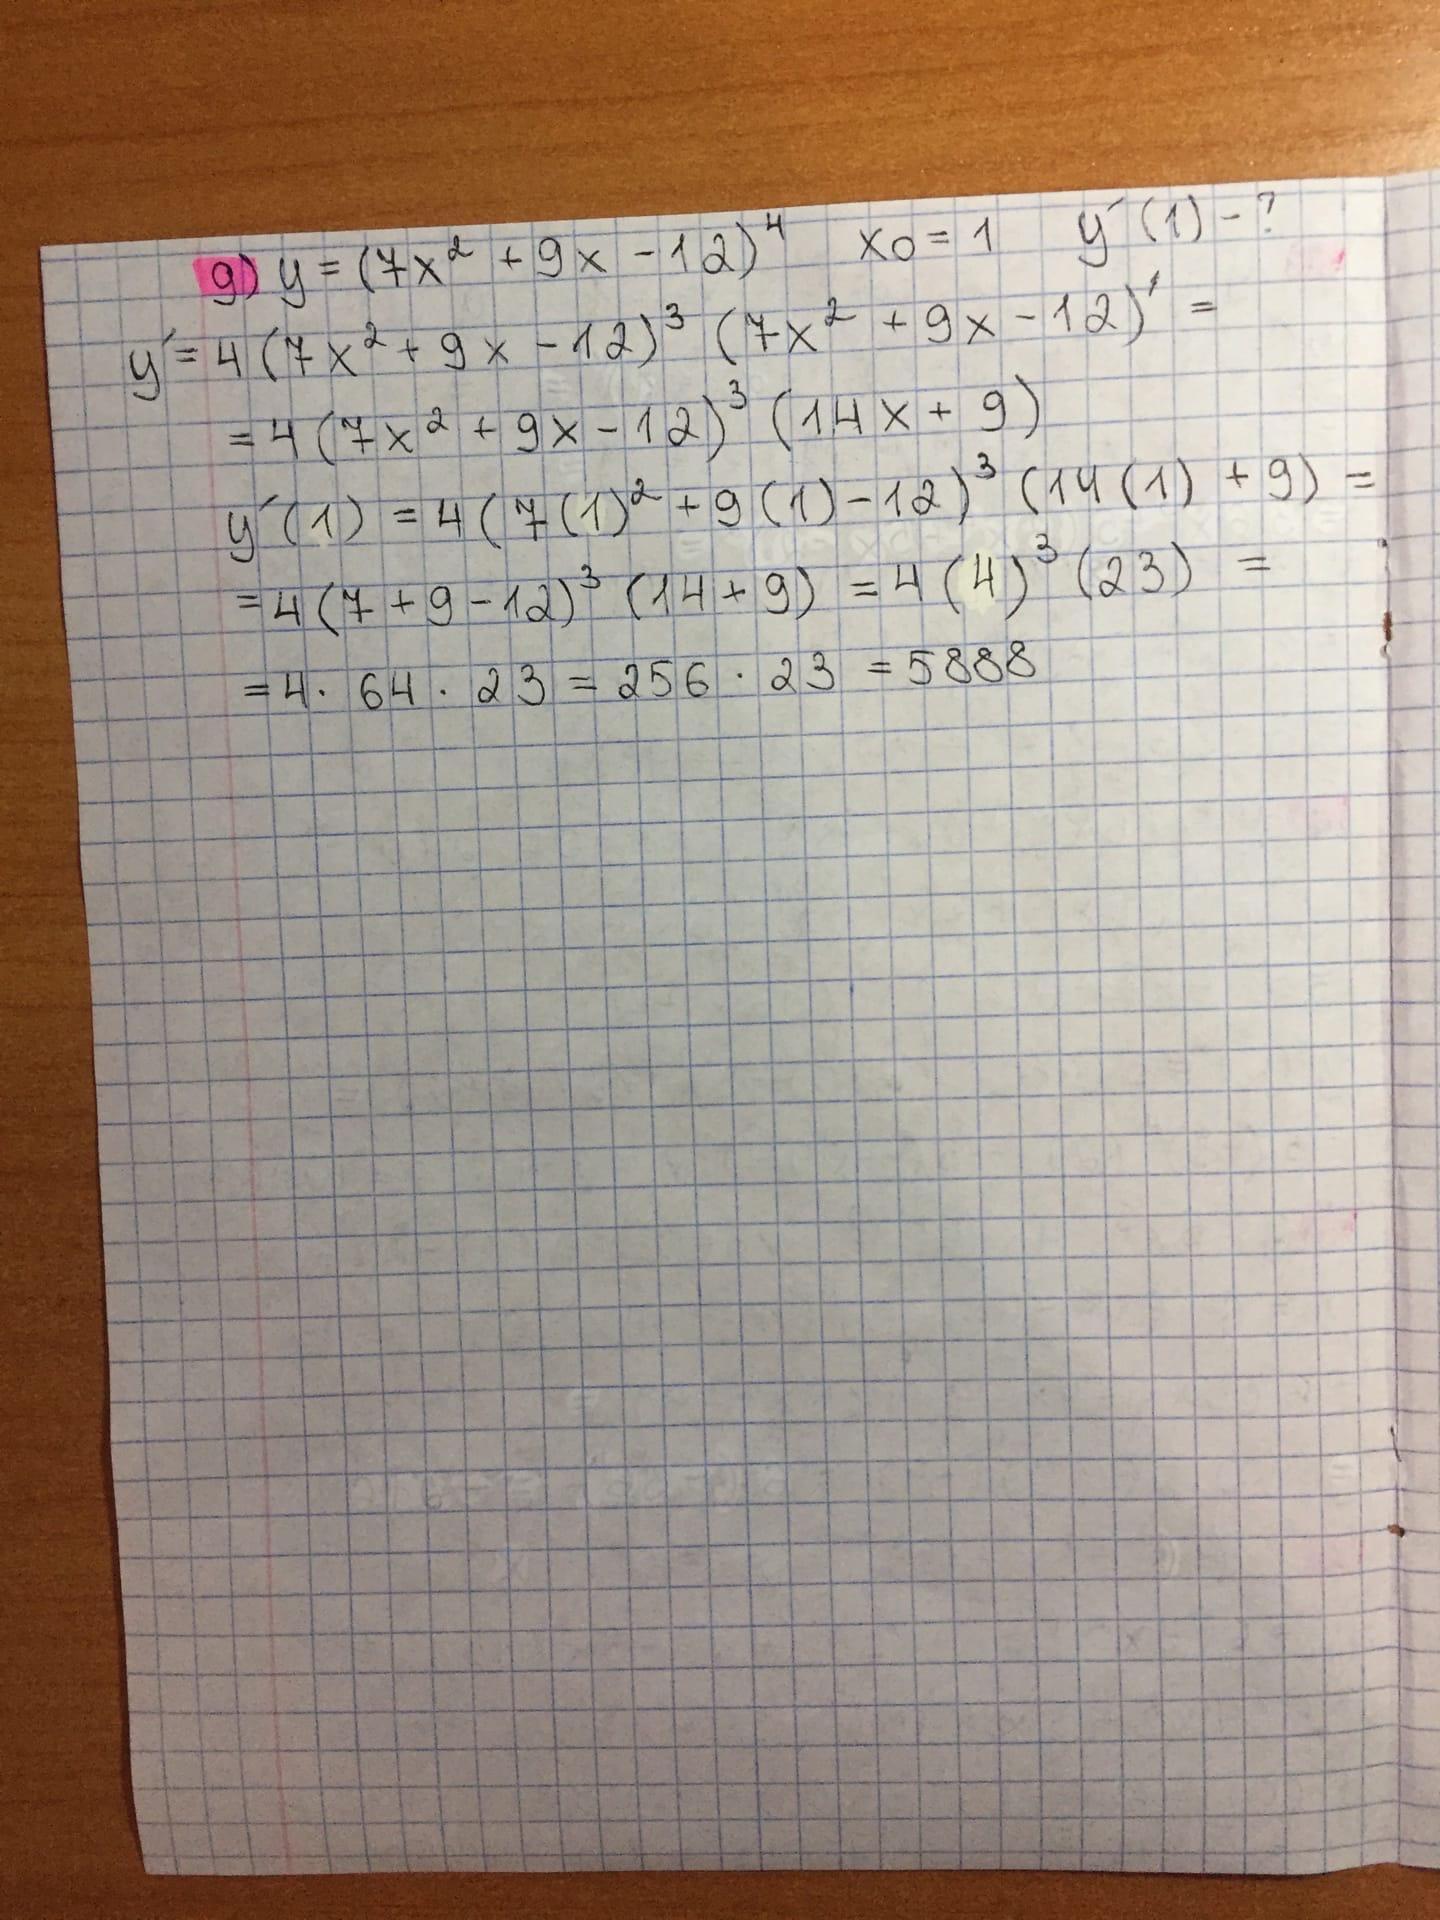 9) y = (7x² + 9x - 12)⁴ x₀ = 1 y´(1) - ?
y´ = 4(7x² + 9x - 12)³ (7x² + 9x - 12)' =
= 4(7x² + 9x - 12)³ (14x + 9)
y´(1) = 4(7(1)² + 9(1) - 12)³ (14(1) + 9) =
= 4(7 + 9 - 12)³ (14 + 9) = 4(4)³ (23) =
= 4 · 64 · 23 = 256 · 23 = 5888